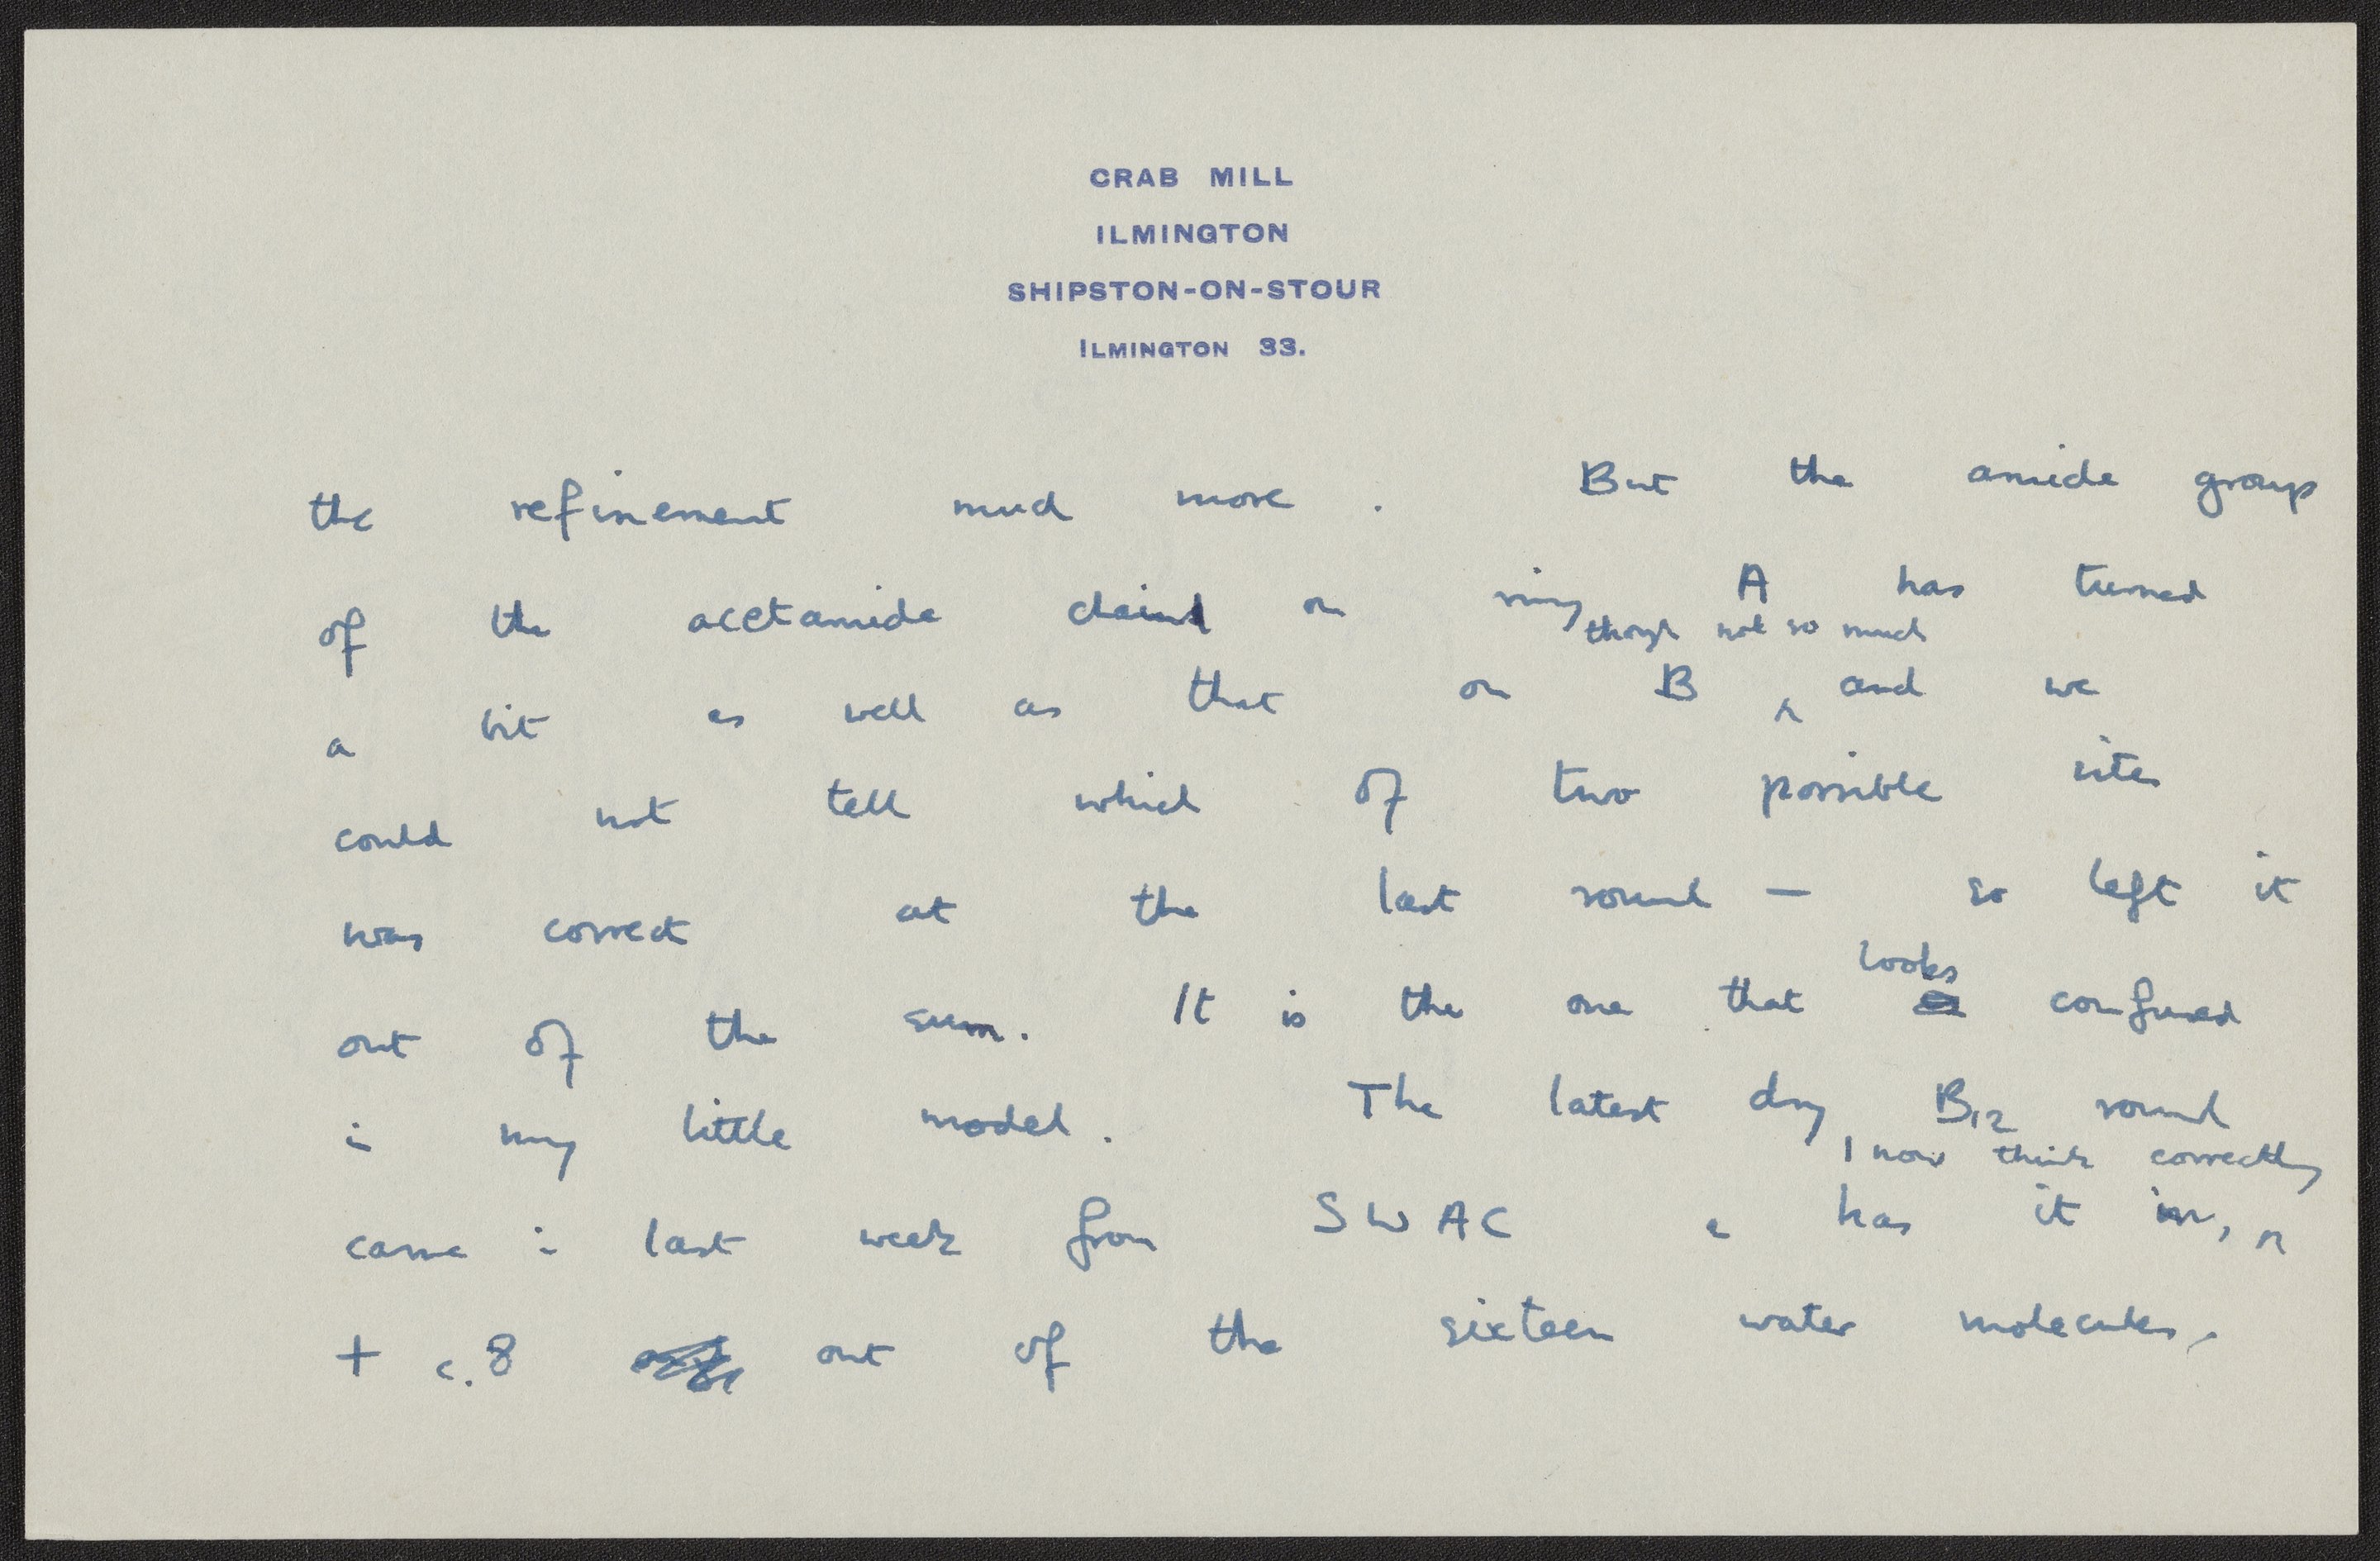 CRAB MILL
ILMINGTON
SHIPSTON-ON-STOUR
ILMINGTON 33.
the refinement much more. But the amide group
of the acetamide chain on ring A has turned
though not so much
a bit as well as that on B ‸ and we
could not tell which of two possible sites
was correct at the last round — so left it
looks
out of the sum. It is the one that confused
in my little model. The latest dry B12 round
I now think correctly
came in last week from SWAC & has it in, ‸
+ c.8 out of the sixteen water molecules,